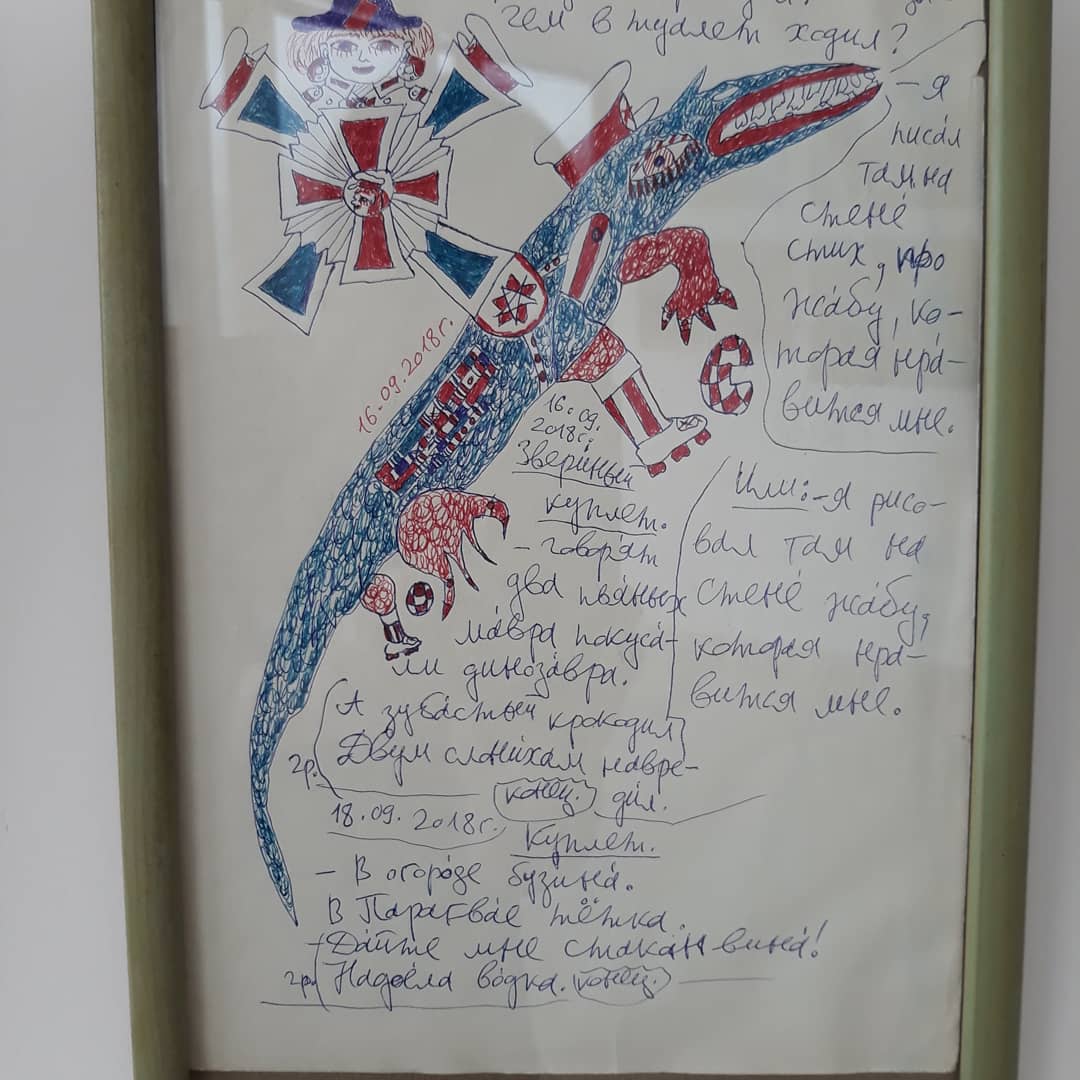 чем в туале́т ходи́л?
— я
писа́л
там на
стене́
стих, про
жа́бу, ко-
торая нра́-
вится мне.
16.09.2018г.
16.09.
2018г.
Звери́ный
купле́т.
— говоря́т
два пья́ных
ма́вра покуса́-
ли диноза́вра.
А зуба́стый крокодил
Двум слони́хам навре-
ди́л.
2р.
конец.
Или: — я рисо-
вал там на
стене́ жа́бу,
которая нра́-
вится мне.
18.09.2018г.
Купле́т.
— В огоро́де бузина́.
В Парагва́е тётка.
Да́йте мне стака́н вина́!
2р. Надое́ла во́дка. конец.